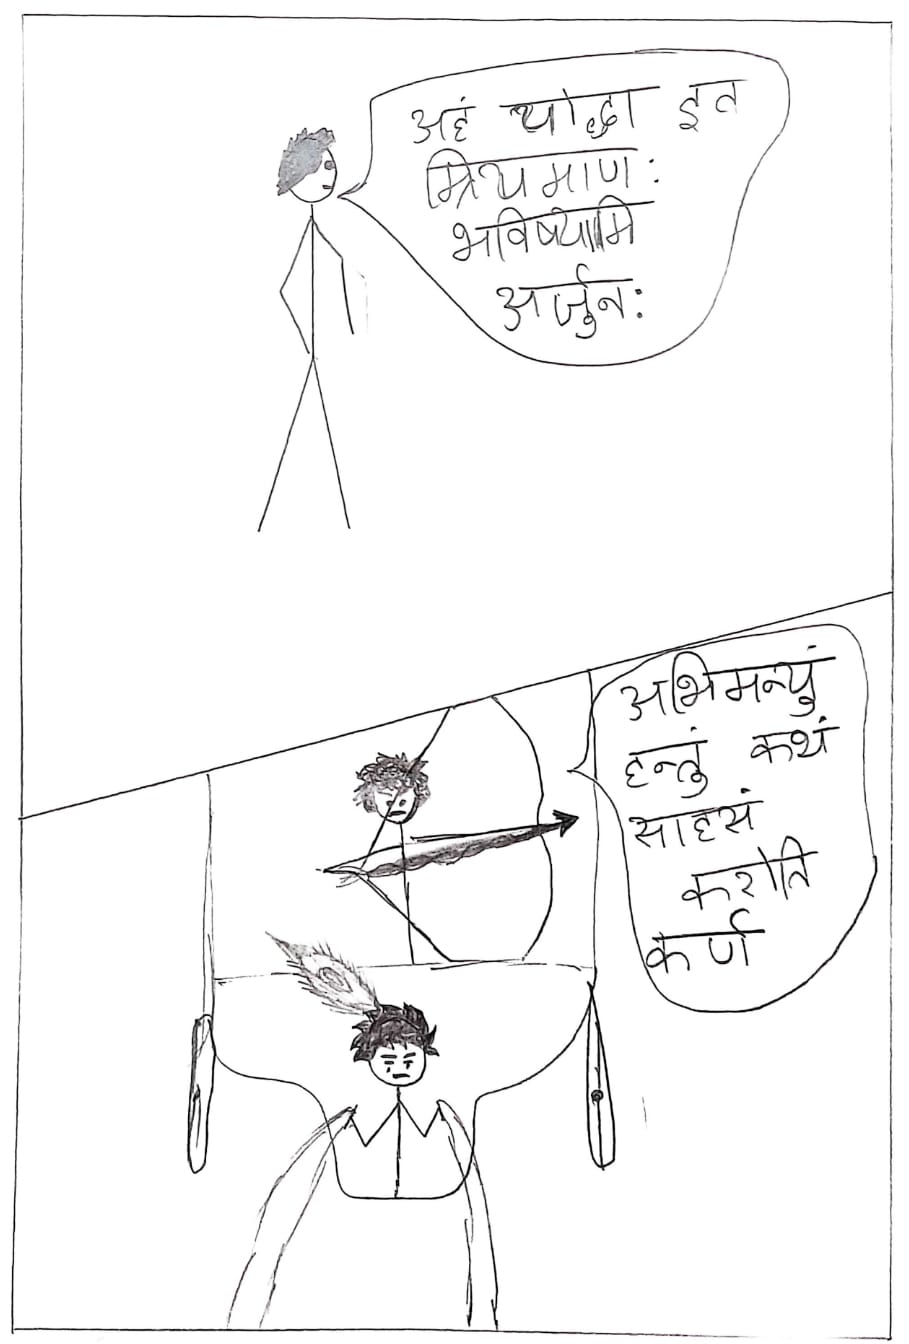 अहं योद्धा इत
म्रियमाणः
भविष्यामि
अर्जुनः
अभिमन्युं
हन्तुं कथं
साहसं
करोति
कर्ण